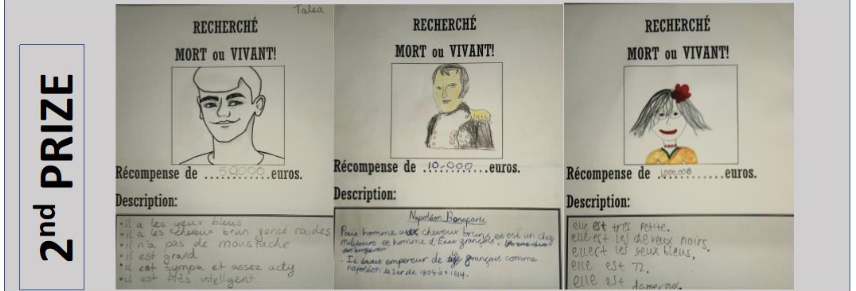 2nd PRIZE
Talea
RECHERCHÉ
MORT ou VIVANT!
Récompense de ....50000....euros.
Description:
•il a les yeux bleus
•il a les cheveux brun foncé raides
•il n'a pas de moustache
•il est grand
•il est sympa et assez
•il est très inteligent.
RECHERCHÉ
MORT ou VIVANT!
Récompense de ..10.000........euros.
Description:
Napoléon Bonaparte
homme cheveux bruns, et est un chef
militaire et homme d'Etat français.
empereur de français comme
napoléon 1er de 1804 à 1814.
RECHERCHÉ
MORT ou VIVANT!
Récompense de ............euros.
Description:
elle est très petite.
elle est les noirs.
les yeux bleus.
elle est 72.
elle est